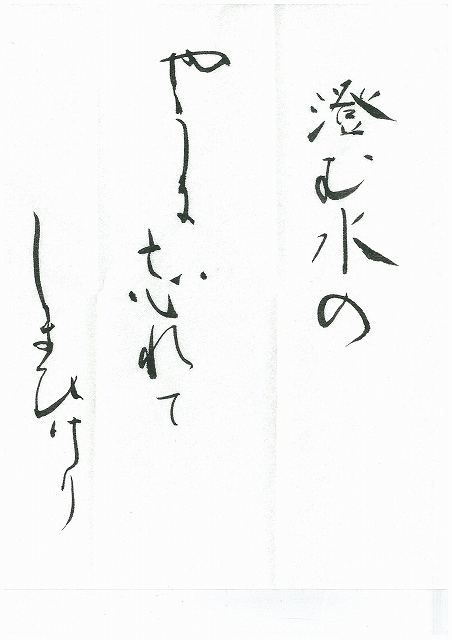 澄む水の
やしに忘れて
しまひけり